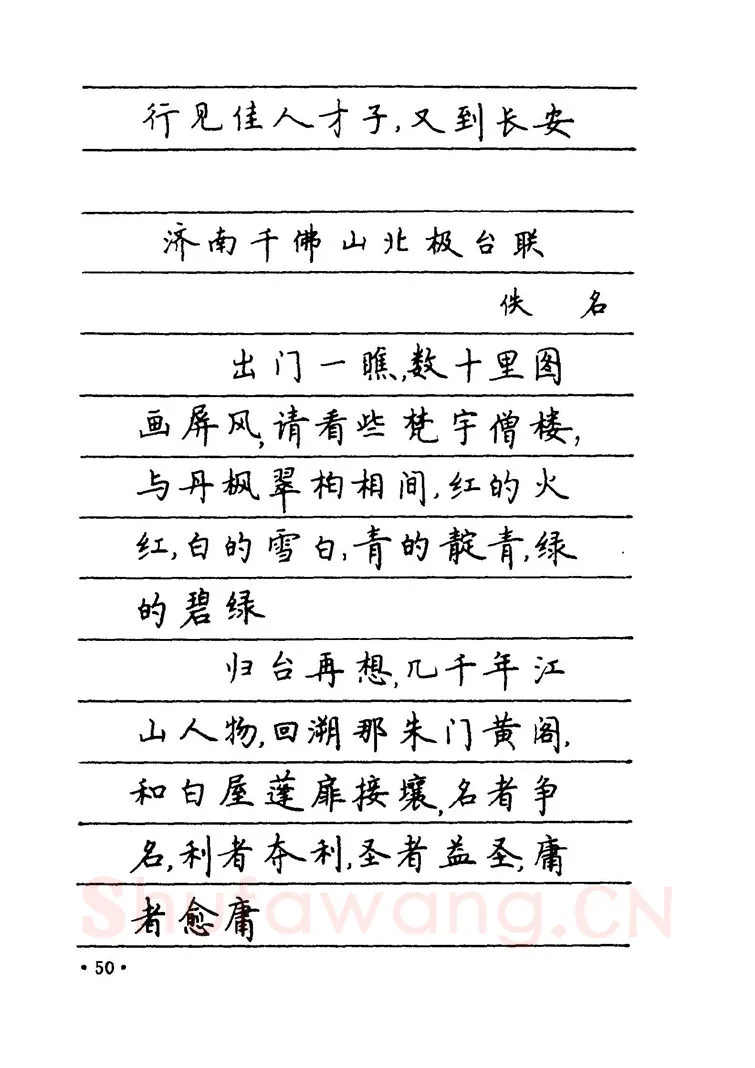 行见佳人才子,又到长安
济南千佛山北极台联
佚 名
出门一瞧,数十里图
画屏风,请看些梵宇僧楼,
与丹枫翠柏相间,红的火
红,白的雪白,青的靛青,绿
的碧绿
归台再想,几千年江
山人物,回溯那朱门黄阁,
和白屋蓬扉接壤,名者争
名,利者夺利,圣者益圣,庸
者愈庸
Shufawang.CN
·50·